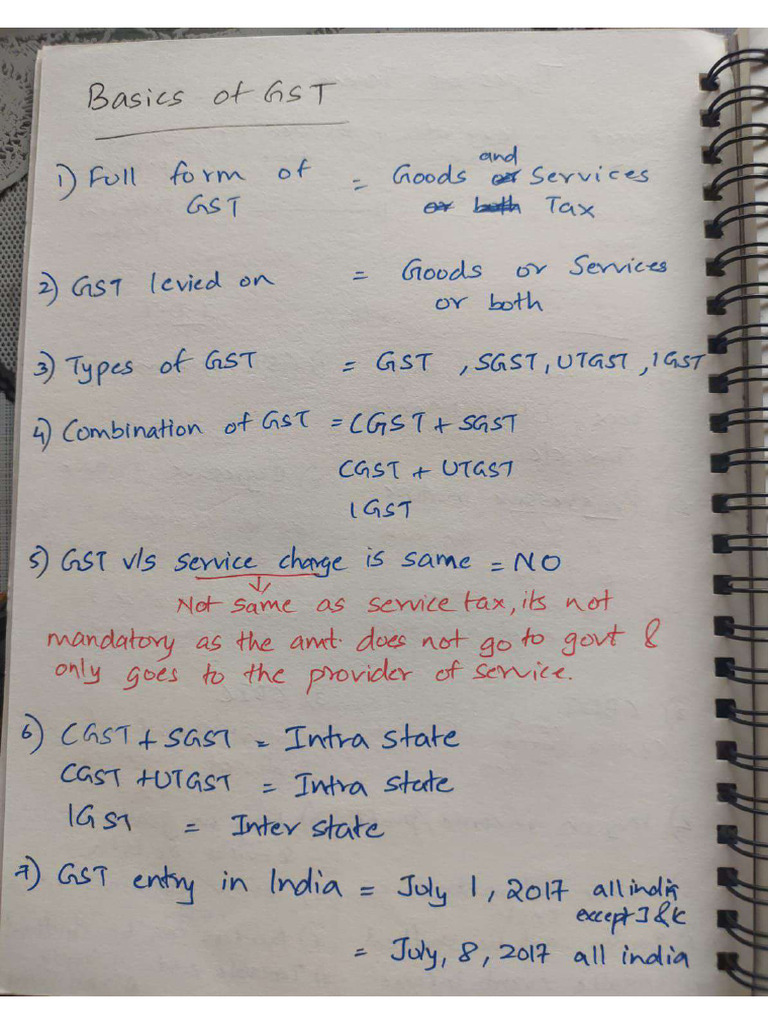 Basics of GST
1) Full form of = Goods and or Services
GST or both Tax
2) GST levied on = Goods or Services
or both
3) Types of GST = GST , SGST, UTGST, IGST
4) Combination of GST = CGST + SGST
CGST + UTGST
IGST
5) GST v/s service charge is same = NO
Not same as service tax, its not
mandatory as the amt. does not go to govt &
only goes to the provider of service.
6) CGST + SGST = Intra state
CGST + UTGST = Intra state
IGST = Inter state
7) GST entry in India = July 1, 2017 all india
except J&K
= July, 8, 2017 all india